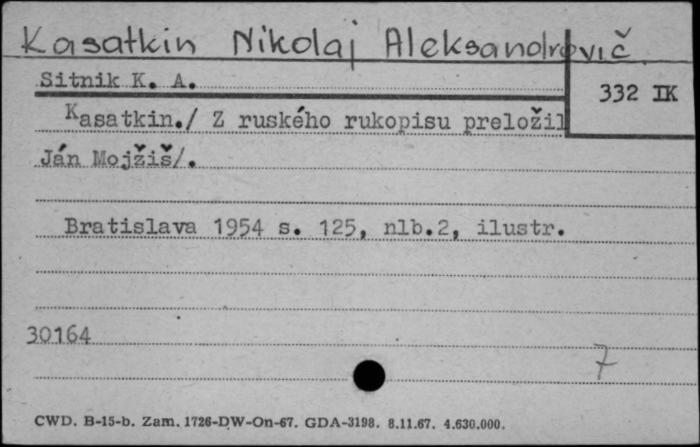 Kasatkin Nikolaj Aleksandrovič
Sitnik K. A.
332 IK
Kasatkin./ Z ruského rukopisu preložil
Ján Mojžiš/.
Bratislava 1954 s. 125, nlb.2, ilustr.
30164
7
CWD. B-15-b. Zam. 1726-DW-On-67. GDA-3198. 8.11.67. 4.630.000.